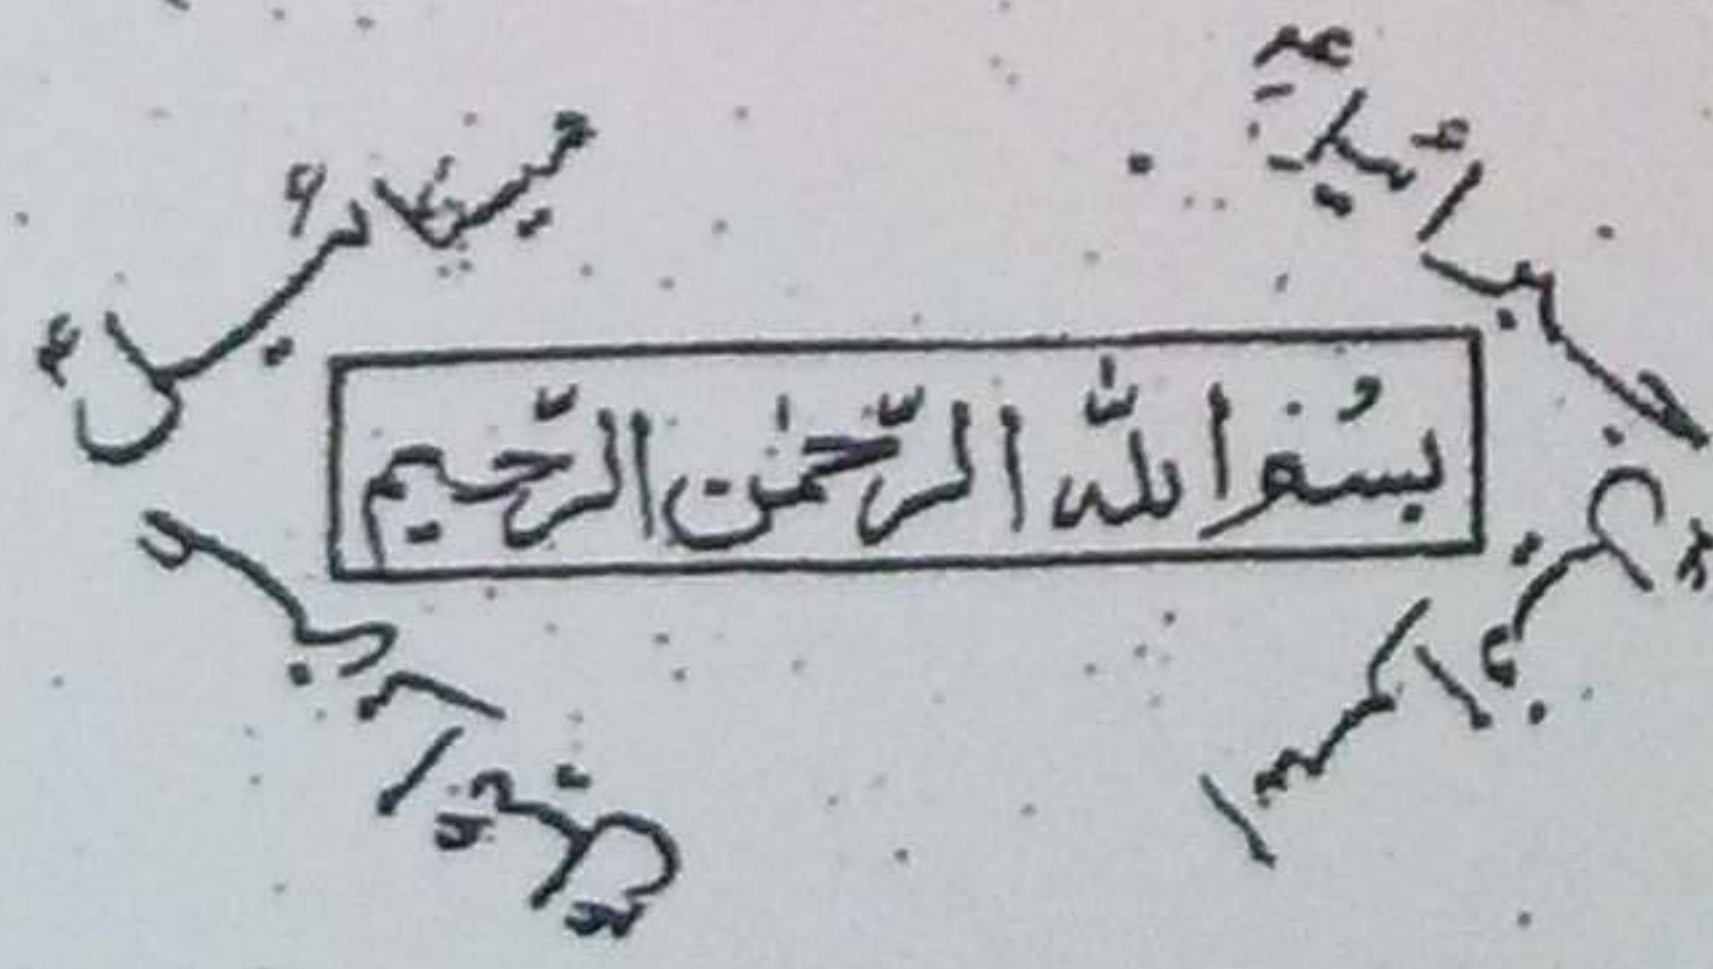 جبرائيل
ميكائيل
بسم الله الرّحمٰن الرّحيم
اسرافيل
عزرائيل